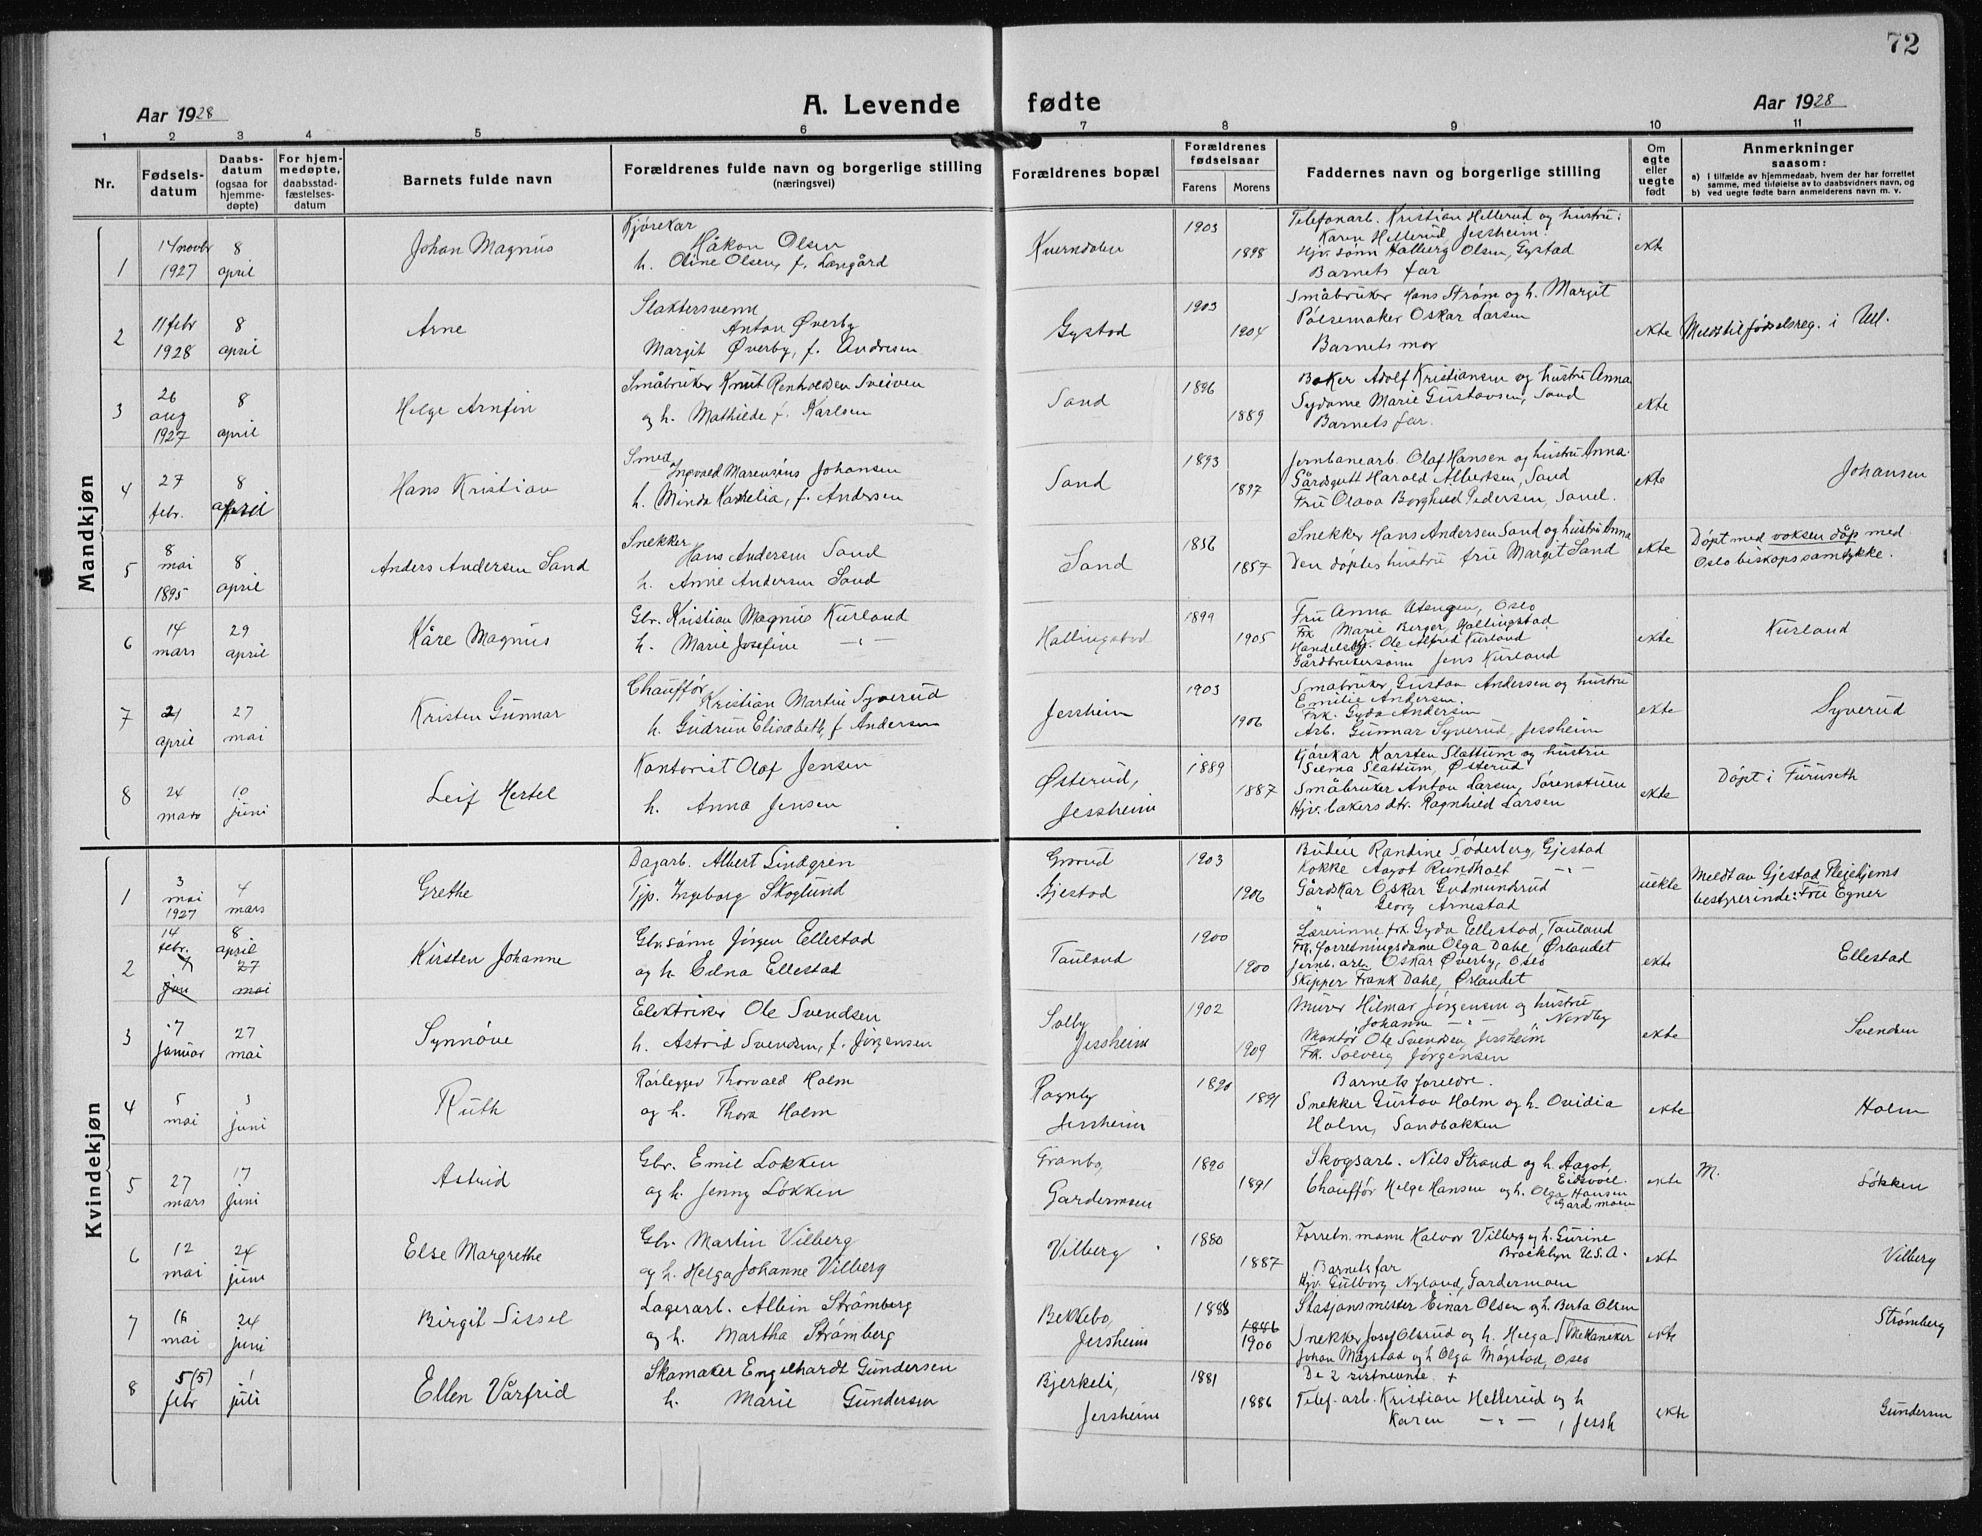 72
Aar 1928
A. Levende fødte
Aar 1928
1 2 3 4 5 6 7 8 9 10 11
Nr.
Fødsels-
datum
Daabs-
datum
(ogsaa for
hjemme-
døpte)
For hjem-
medøpte,
daabsstad-
fæstelses-
datum
Barnets fulde navn
Forældrenes fulde navn og borgerlige stilling
(næringsvei)
Forældrenes bopæl
Forældrenes
fødselsaar
Farens Morens
Faddernes navn og borgerlige stilling
Om
egte
eller
uegte
født
Anmerkninger
saasom:
a) i tilfælde av hjemmedaab, hvem der har forrettet
samme, med tilføielse av to daabsvidners navn, og
b) ved uegte fødte barn anmelderens navn m. v.
Mandkjøn
1
14 novbr
1927
8
april
Johan Magnus
Kjørekar
Håkon Olsen
h. Oline Olsen, f. Langård
Kverndalen
1903
1898
Telefonarb. Kristian Hellerud og hustru:
Karen Hellerud Jessheim.
Hjv. sønn Halberg Olsen, Gystad
Barnets far
ekte
2
11 febr
1928
8
april
Arne
Slaktersvenn
Anton Øverby
Margit Øverby, f. Andresen
Gystad
1903
1904
Småbruker Hans Strøm og h. Margit
Pølsemaker Oskar Larsen
Barnets mor
ekte
Meldt til fødselsreg. i Ull.
3
26
aug
1927
8
april
Helge Arnfin
Småbruker Knut Renholdsen Sveiven
og h. Mathilde f. Karlsen
Sand
1896
1889
Baker Adolf Kristiansen og hustru Anna
Sydame Marie Gustavsen, Sand
Barnets far.
ekte
4
27
febr.
8
april
Hans Kristian
Smed
Ingvald Marensius Johansen
h. Minda Kornelia, f. Andersen
Sand
1893
1897
Jernbanearb. Olaf Hansen og hustru Anna.
Gårdsgutt Harald Albertsen, Sand
Fru Olava Borghild Pedersen, Sand.
ekte
Johansen
5
8
mai
1895
8
april
Anders Andersen Sand
Snekker
Hans Andersen Sand
h. Anne Andersen Sand
Sand
1856
1857
Snekker Hans Andersen Sand og hustru Anna
Den døptes hustru fru Margit Sand
ekte
Døpt med voksen dåp med
Oslo biskops samtykke.
6
14
mars
29
april
Kåre Magnus
Gbr. Kristian Magnus Kurland
h. Marie Josefine -"-
Hallingstad
1899
1905
Fru Anna Utengen, Oslo
Frk Marie Berger, Hallingstad
Handelsbtj. Ole Alfred Kurland
Gårdbrukersønn Jens Kurland
ekte
Kurland
7
21
april
27
mai
Kristen Gunnar
Chauffør
Kristian Martin Syverud
h. Gudrun Elisabeth, f. Andersen
Jessheim
1903
1906
Småbruker Gustav Andersen og hustru
Emilie Andersen.
Frk. Gyda Andersen
Arb. Gunnar Syverud, Jessheim
ekte
Syverud
8
24
mars
10
juni
Leif Hertel
Kontorist Olaf Jensen
h. Anna Jensen
Østerud,
Jessheim
1889
1887
Kjørekar Karsten Slattum og hustru
Selma Slattum, Østerud
Småbruker Anton Larsen, Sørenstuen
Hjv. bakersdtr. Ragnhild Larsen
ekte
Døpt i Furuseth
Kvindekjøn
1
3
mai
1927
4
mars
Grethe
Dagarb. Albert Lindgren
Tjp. Ingeborg Skoglund
Grorud
Gjestad
1903
1906
Budeie Randine Søderberg, Gjestad
Kokke Aagot Rundholt -"-
Gårdskar Oskar Gudmundsrud
" Georg Arnestad
uekte
Meldt av Gjestad Pleiehjems
bestyrerinde: Fru Egner
2
14
febr.
7
jan
8
april
27
mai
Kirsten Johanne
Gbr.sønn Jørgen Ellestad
og h. Edna Ellestad
Tauland
1900
1900
Lærerinne frk Gyda Ellestad, Tauland
Frk. forretningsdame Olga Dahl, Ørlandet
Jernb. arb. Oskar Øverby, Oslo
Skipper Frank Dahl, Ørlandet
ekte
Ellestad
3
7
januar
27
mai
Synnøve
Elektriker Ole Svendsen
h. Astrid Svendsen, f. Jørgensen
Solby
Jessheim
1902
1909
Murer Hilmar Jørgensen og hustru
Johanne -"- Nordby
Montør Ole Svendsen, Jessheim
Frk. Solveig Jørgensen
ekte
Svendsen
4
5
mai
3
juni
Ruth
Rørlegger Thorvald Holm
og h. Thora Holm
Ragnby
Jessheim
1890
1891
Barnets foreldre.
Snekker Gustav Holm og h. Ovidia
Holm, Sandbakken
ekte
Holm
5
27
mars
17
juni
Astrid
Gbr. Emil Løkken
og h. Jenny Løkken
Granbo,
Gardermoen
1890
1891
Skogsarb. Nils Strand og h. Aagot,
Eidsvoll.
Chauffør Helge Hansen og h. Olga Hansen
Gardmoen
ekte
M.
Løkken
6
12
mai
24
juni
Else Margrethe
Gbr. Martin Vilberg
og h. Helga Johanne Vilberg
Vilberg
1880
1887
Forretn.mann Halvor Vilberg og h. Gurine
Brooklyn U.S.A.
Barnets far
Hjv. Gulborg Nyland, Gardermoen
ekt
Vilberg
7
16
mai
24
juni
Birgit Sissel
Lagerarb. Albin Strømberg
og h. Martha Strømberg
Bekkebo,
Jessheim
1888
1886
1900
Stasjonsmester Einar Olsen og h. Berta Olsen
Snekker Josef Olsrud og h. Helga Mekaniker
Johan Møgstad og h Olga Møgstad, Oslo
ekte
Strømberg
8
5 (5)
febr
1
juli
Ellen Vårfrid
Skomaker Engelhardt Gundersen
h. Marie Gundersen
Bjerkeli,
Jessheim
1881
1886
De 2 sistnevnte +
Telef. arb. Kristian Hellerud og h
Karen -"- , Jessh
ekte
Gundersen